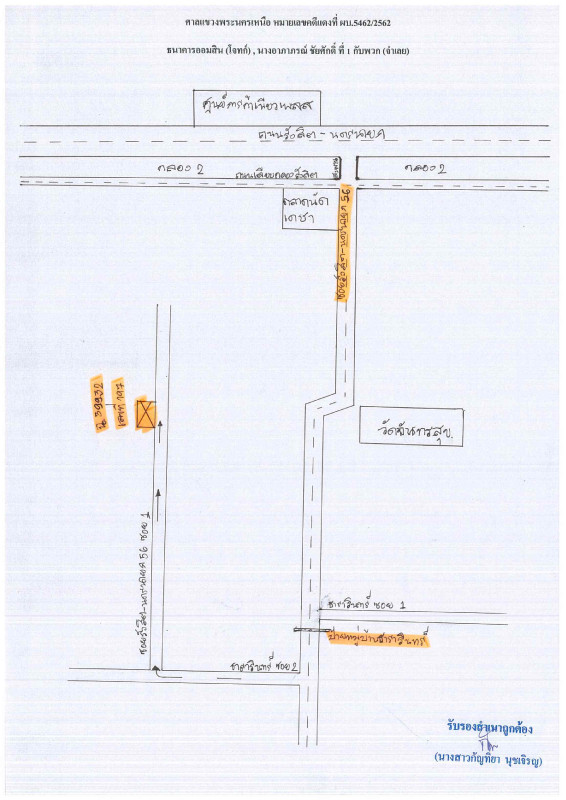 ศาลแขวงพระนครเหนือ หมายเลขคดีแดงที่ ผบ.5462/2562
ธนาคารออมสิน (โจทก์) , นางอาภาภรณ์ ชัยศักดิ์ ที่ 1 กับพวก (จำเลย)
ถนนรังสิต - นครนายก
คลอง 2
ถนนเลียบคลองรังสิต
คลอง 2
ตลาดนัด
เดชา
ซอยรังสิต-นครนายก 56
ฉ. 39932
เลขที่ 197
วัดจันทรสุข
ซอยรังสิต-นครนายก 56 ซอย 1
ธารารินทร์ ซอย 1
ป้ายหมู่บ้านธารารินทร์
ธารารินทร์ ซอย 2
รับรองสำเนาถูกต้อง
(นางสาวกัญทิยา นุชเจริญ)